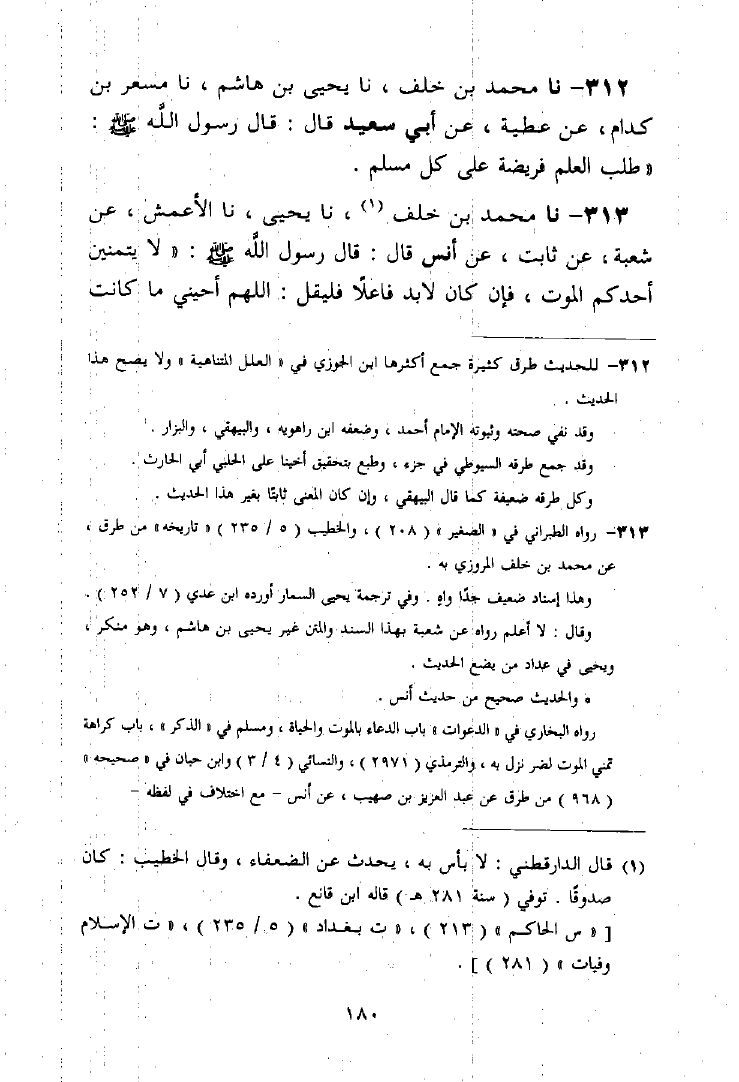 ٣١٢- نا محمد بن خلف ، نا يحيى بن هاشم ، نا مسعر بن
كدام، عن عطية ، عن أبي سعيد قال : قال رسول اللَّه ﷺ :
« طلب العلم فريضة على كل مسلم .
٣١٣- نا محمد بن خلف (١) ، نا يحيى ، نا الأعمش ، عن
شعبة ، عن ثابت ، عن أنس قال : قال رسول اللَّه ﷺ : « لا يتمنين
أحدكم الموت ، فإن كان لابد فاعلًا فليقل : اللهم أحيني ما كانت
٣١٢- للحديث طرق كثيرة جمع أكثرها ابن الجوزي في « العلل المتناهية » ولا يصح هذا
الحديث .
وقد نفي صحته وثبوته الإمام أحمد ، وضعفه ابن راهويه ، والبيهقي ، والبزار .
وقد جمع طرقه السيوطي في جزء ، وطبع بتحقيق أخينا على الحلبي أبي الحارث .
وكل طرقه ضعيفة كما قال البيهقي ، وإن كان المعنى ثابتًا بغير هذا الحديث .
٣١٣- رواه الطبراني في « الصغير » ( ٢٠٨ ) ، والخطيب ( ٥ / ٢٣٥ ) « تاريخه» من طرق ،
عن محمد بن خلف المروزي به .
وهذا إسناد ضعيف جدًا واهٍ . وفي ترجمة يحيى السمار أورده ابن عدي ( ٧ / ٢٥٢ ) .
وقال : لا أعلم رواه عن شعبة بهذا السند والمتن غير يحيى بن هاشم ، وهو منكر ،
ويحيى في عداد من يضع الحديث .
* والحديث صحيح من حديث أنس .
رواه البخاري في « الدعوات » باب الدعاء بالموت والحياة ، ومسلم في « الذكر » ، باب كراهة
تمني الموت لضر نزل به ، والترمذي ( ٢٩٧١ ) ، والنسائي ( ٤ / ٣ ) وابن حبان في « صحيحه »
( ٩٦٨ ) من طرق عن عبد العزيز بن صهيب ، عن أنس – مع اختلاف في لفظه –
(١) قال الدارقطني : لا بأس به ، يحدث عن الضعفاء ، وقال الخطيب : كان
صدوقًا . توفي ( سنة ٢٨١ هـ ) قاله ابن قانع .
[ « س الحاكم » ( ٢١٣ ) ، « ت بغداد » ( ٥ / ٢٣٥ ) ، « ت الإسلام
وفيات » ( ٢٨١ ) ] .
١٨٠